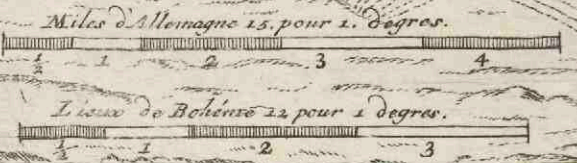 Miles d'Allemagne 15. pour 1. degres.
1/2 1 2 3 4
Lieux de Bohéme 12 pour 1 degres.
1/2 1 2 3